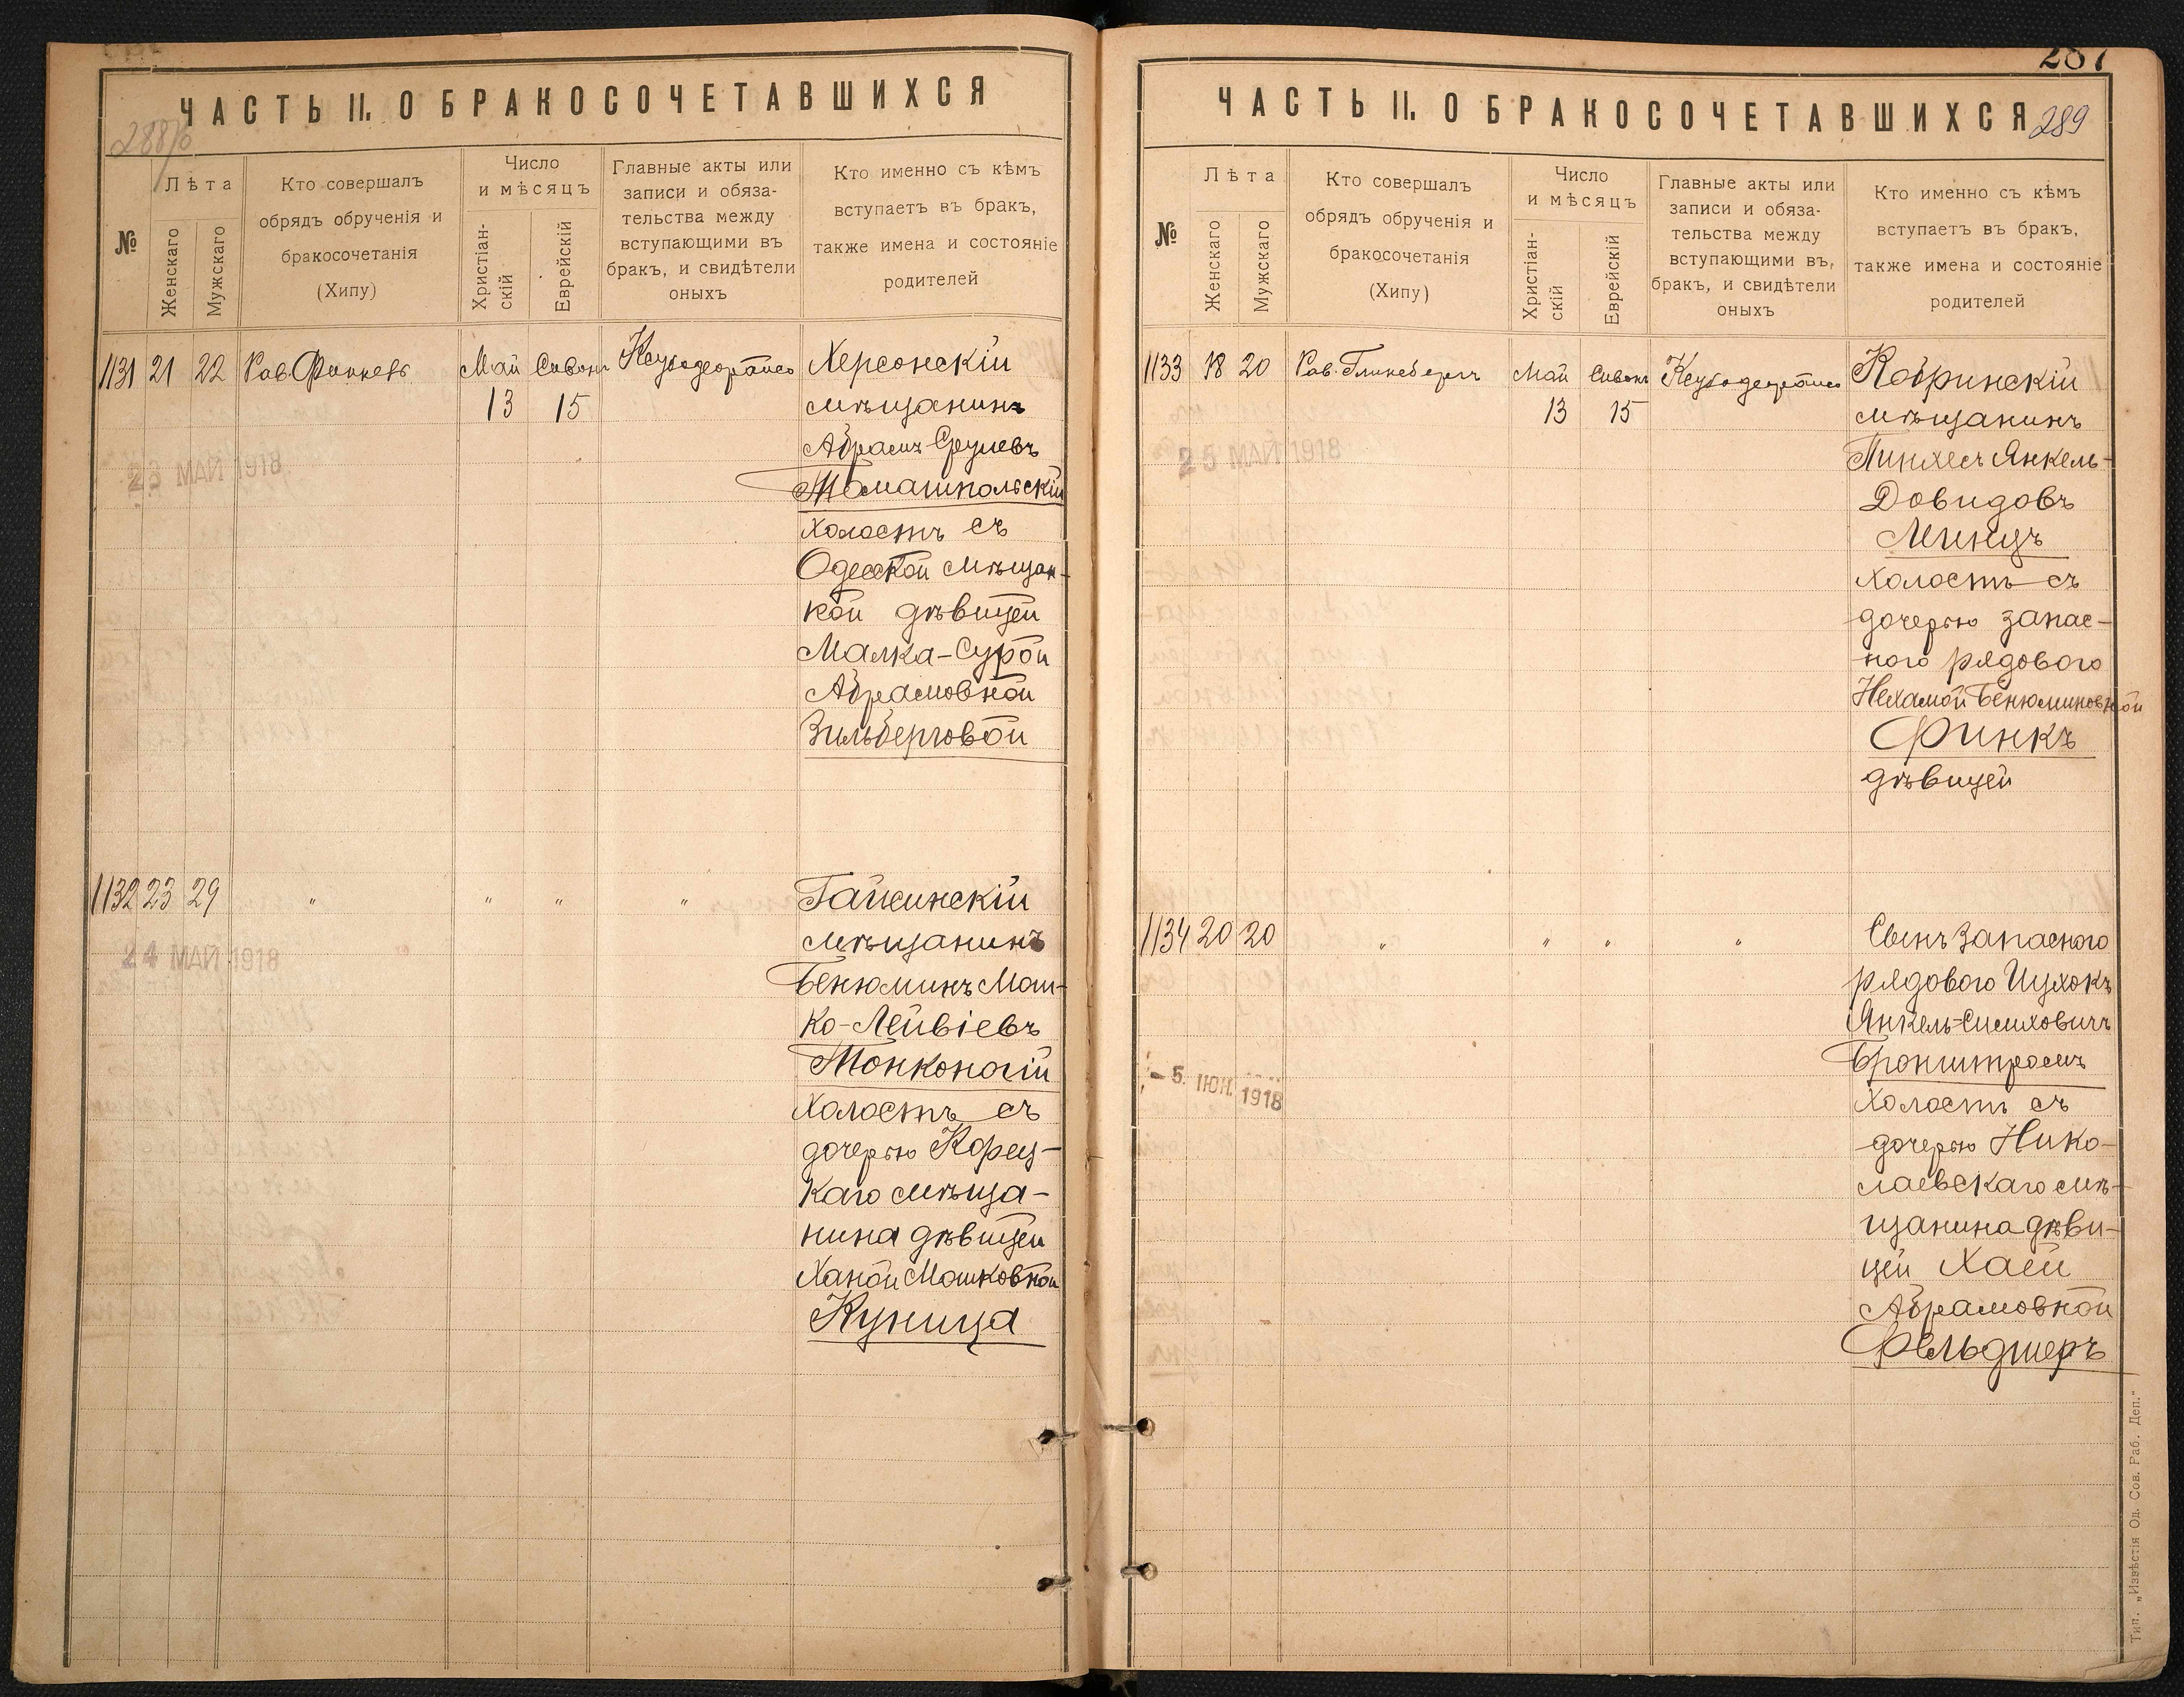 ЧАСТЬ II. О БРАКОСОЧЕТАВШИХСЯ
288/б
№
Лѣта
Женскаго
Мужскаго
Кто совершалъ
обрядъ обрученія и
бракосочетанія
(Хипу)
Число
и мѣсяцъ
Христіан-
скій
Еврейскій
Главные акты или
записи и обяза-
тельства между
вступающими въ
бракъ, и свидѣтели
оныхъ
Кто именно съ кѣмъ
вступаетъ въ бракъ,
также имена и состояніе
родителей
1131 21 22 Рав. Май Сивонъ Херсонскій
13 15 мѣщанинъ
Абрамъ Срулевъ
23 МАЙ 1918
Томашпольскій
холостъ съ
Одесской мѣщан-
кой дѣвицей
Малка-Сурой
Абрамовной
Зильберговой
1132 23 29 " " " " Гайсинскій
мѣщанинъ
24 МАЙ 1918
Бенюминъ Мош-
ко-Лейвіевъ
Тонконогій
холостъ съ
дочерью Корец-
каго мѣща-
нина дѣвицей
Ханой Мошковной
Куница
287
ЧАСТЬ II. О БРАКОСОЧЕТАВШИХСЯ
289
№
Лѣта
Женскаго
Мужскаго
Кто совершалъ
обрядъ обрученія и
бракосочетанія
(Хипу)
Число
и мѣсяцъ
Христіан-
скій
Еврейскій
Главные акты или
записи и обяза-
тельства между
вступающими въ
бракъ, и свидѣтели
оныхъ
Кто именно съ кѣмъ
вступаетъ въ бракъ,
также имена и состояніе
родителей
1133 18 20 Рав. Гликсбергъ Май Сивонъ Кобринскій
13 15 мѣщанинъ
25 МАЙ 1918
Пинхесъ Янкель-
Довидовъ
Минцъ
холостъ съ
дочерью запас-
ного рядового
Нехамой Бенюминовной
Финкъ
дѣвицей
1134 20 20 " " " " Сынъ запасного
рядового Ицхокъ
Янкель-Симховичъ
Бронштромъ
- 5. ІЮН. 1918
холостъ съ
дочерью Нико-
лаевскаго мѣ-
щанина дѣви-
цей Хаей
Абрамовной
Фельдшеръ
Тип. „Извѣстія Од. Сов. Раб. Деп.“